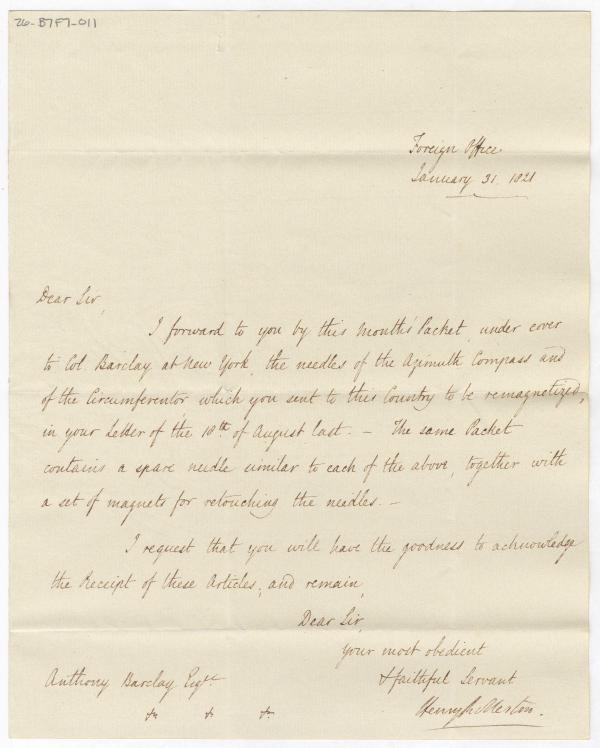 26-B7F7-011
Foreign Office
January 31. 1821
Dear Sir,
I forward to you by this Month's Packet, under cover
to Col. Barclay at New York, the needles of the Azimuth Compass and
of the Circumferentor, which you sent to this Country to be remagnetized,
in your Letter of the 18th of August last. – The same Packet
contains a spare needle similar to each of the above, together with
a set of magnets for retouching the needles. –
I request that you will have the goodness to acknowledge
the Receipt of these Articles; and remain,
Dear Sir,
Your most obedient
& faithful Servant
Anthony Barclay Esqre
&c &c &c
Henry